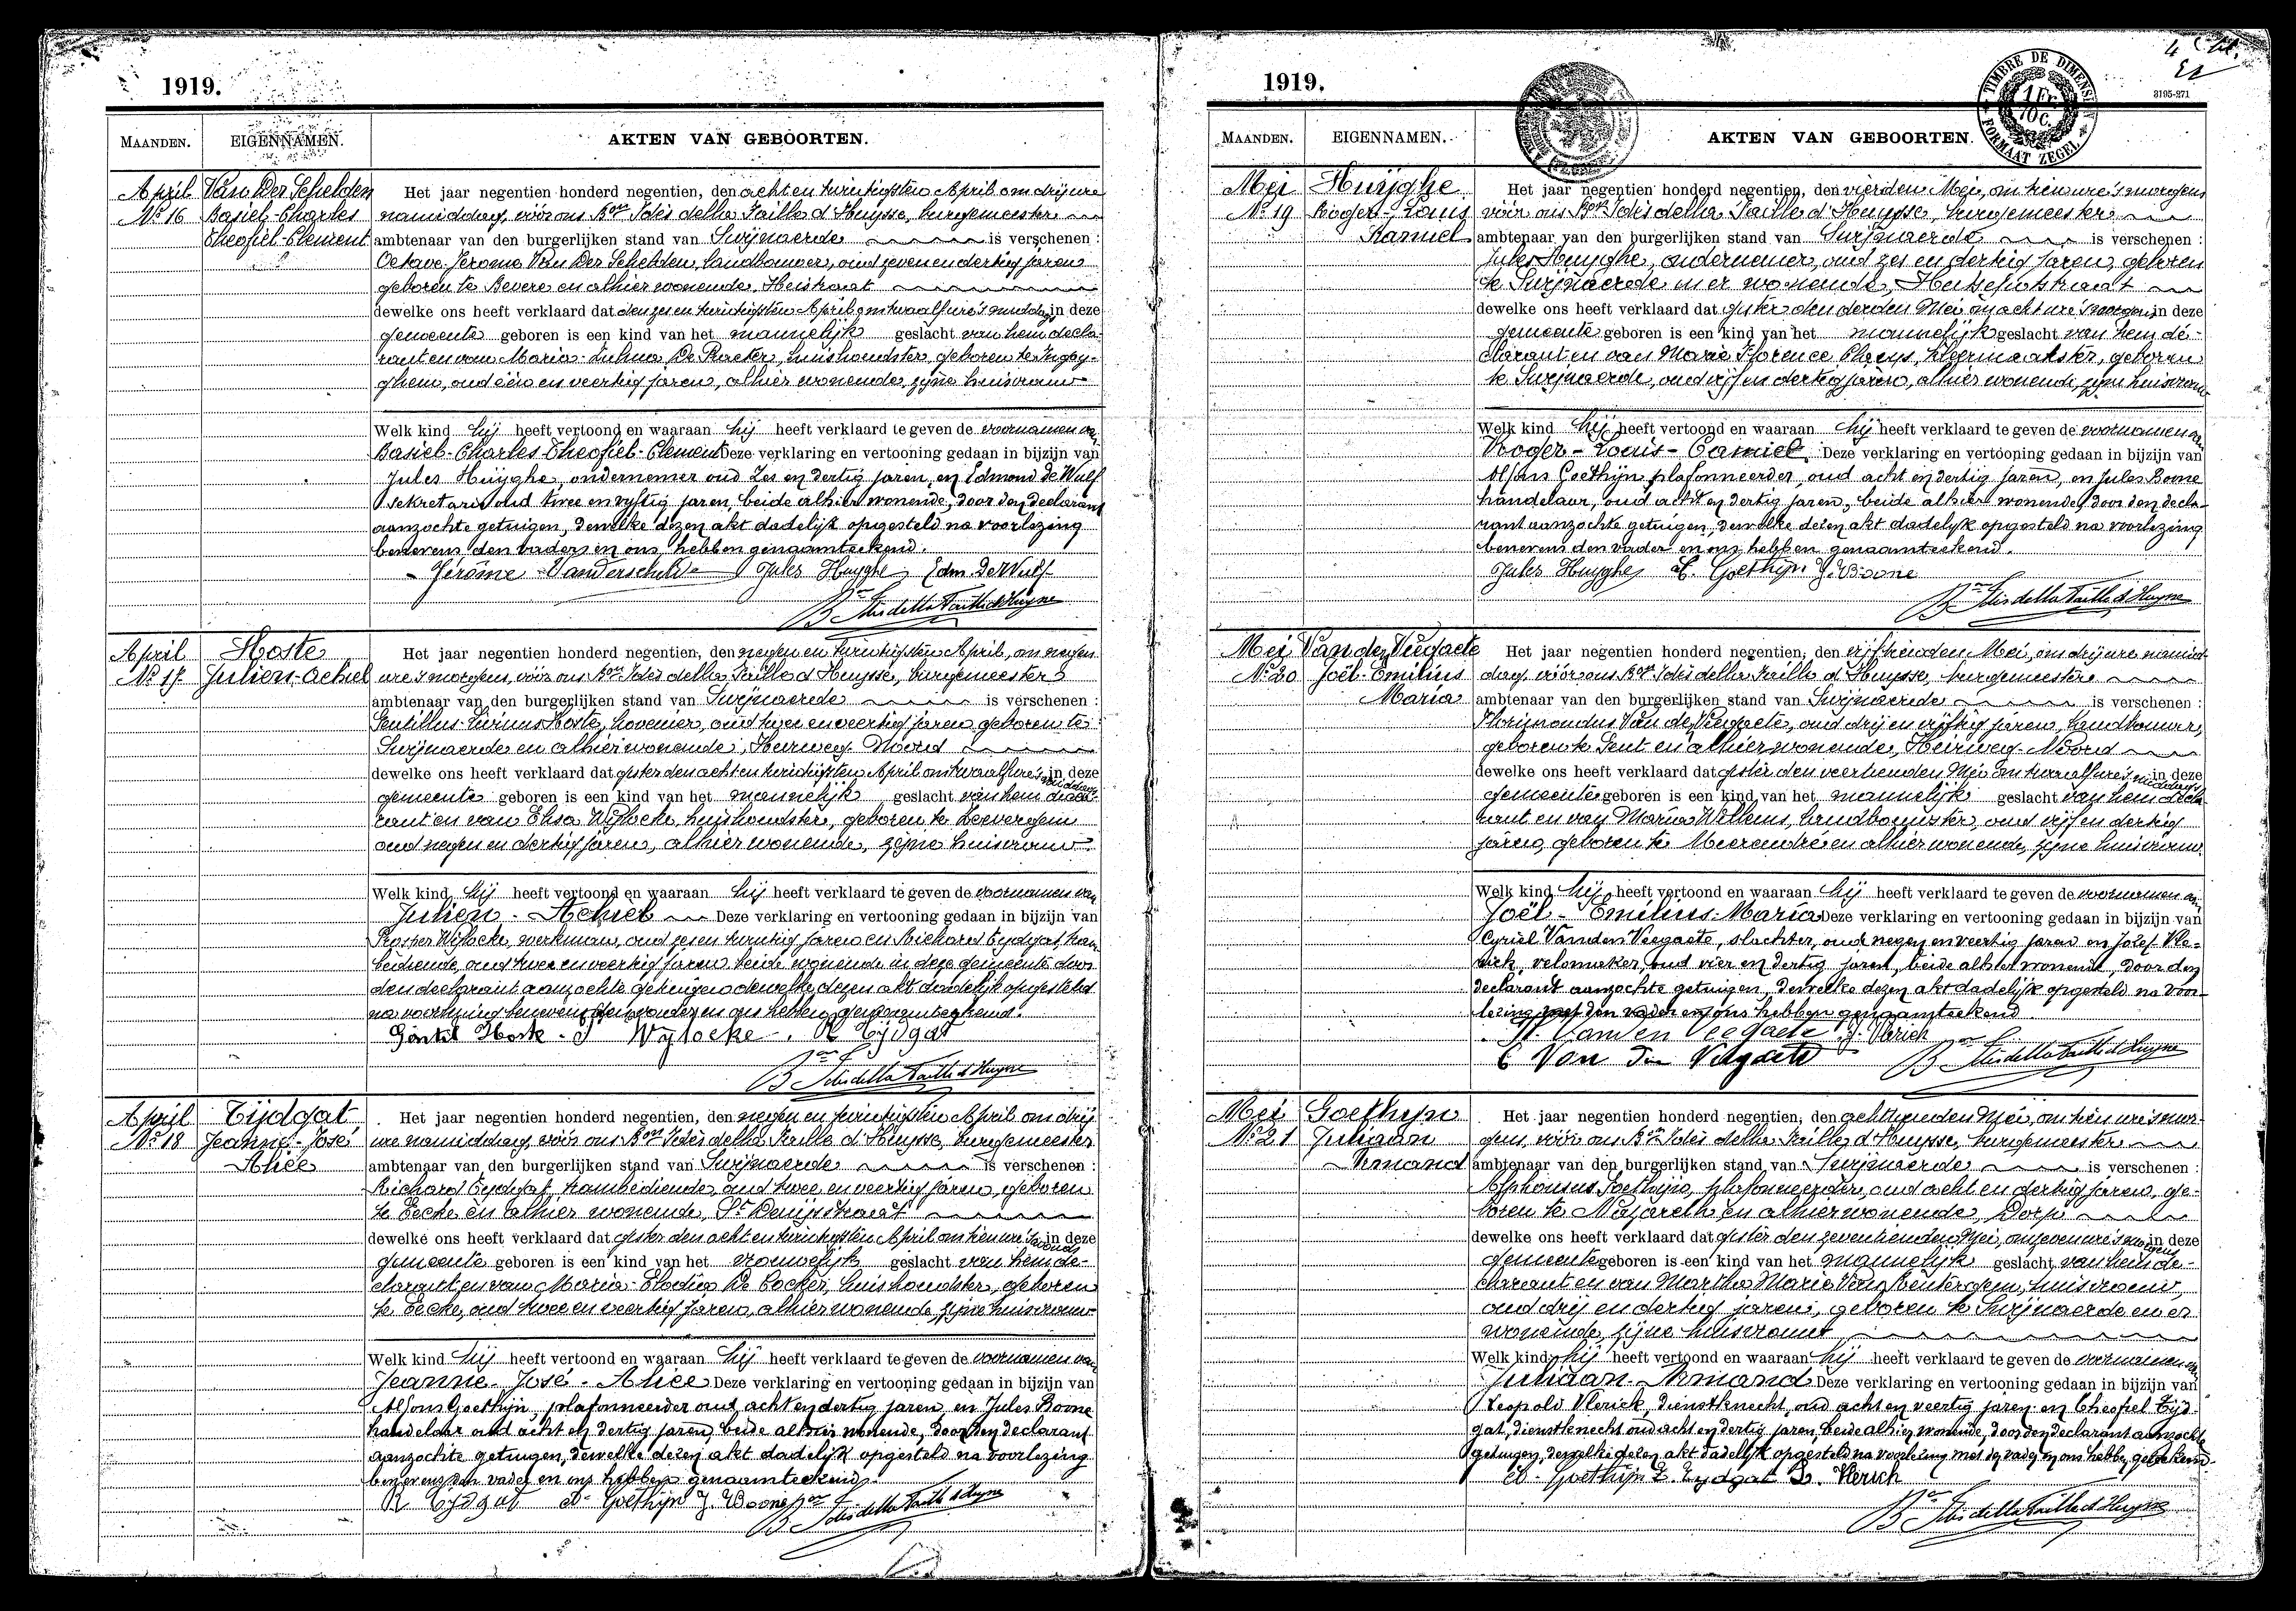 1919.
MAANDEN. EIGENNAMEN. AKTEN VAN GEBOORTEN.
April Van Der Schelden Het jaar negentien honderd negentien, den acht en twintigsten April om drij ure
No 16 Basiel-Charles namiddag, vóór ons Bon Idès della Faille d'Huysse, burgemeester
Theofiel-Clement ambtenaar van den burgerlijken stand van Swijnaerde is verschenen :
Octave-Jerome Van Der Schelden, landbouwer, oud zeven en dertig jaren
geboren te Bevere en alhier wonende, Heistraat
dewelke ons heeft verklaard dat den zes en twintigsten April om twaalf ure 's middags in deze
gemeente geboren is een kind van het mannelijk geslacht van hem decla-
rant en van Maria- De Praeter, huishoudster, geboren te
oud één en veertig jaren, alhier wonende, zijne huisvrouw
Welk kind hij heeft vertoond en waaraan hij heeft verklaard te geven de voornamen van
Basiel-Charles-Theofiel-Clement Deze verklaring en vertooning gedaan in bijzijn van
Jules Huÿghe, ondernemer oud zes en dertig jaren, en Edmond de Wulf
sekretaris oud twee en vyftig jaren, beide alhier wonende, door den declarant
aanzochte getuigen, dewelke dezen akt dadelijk opgesteld na voorlezing
benevens den vader en ons, hebben genaamteekend.
Jérôme Vanderschelde Jules Huyghe Edm. De Wulf
Bon Idès della Faille d'Huysse
April Hoste Het jaar negentien honderd negentien, den negen en twintigsten April, om negen
No 17 Julien-Achiel ure 's morgens, vóór ons Bon Idès della Faille d'Huysse, burgemeester
ambtenaar van den burgerlijken stand van Swijnaerde is verschenen :
Hoste, hovenier, oud twee en veertig jaren geboren te
Swijnaerde en alhier wonende, Heirweg Noord
dewelke ons heeft verklaard dat gister den acht en twintigsten April om twaalf ure 's middags in deze
gemeente geboren is een kind van het mannelijk geslacht van hem decla-
rant en van Elisa Wijlocke, huishoudster, geboren te Leevergem
oud negen en dertig jaren, alhier wonende, zijne huisvrouw
Welk kind hij heeft vertoond en waaraan hij heeft verklaard te geven de voornamen van
Julien - Achiel Deze verklaring en vertooning gedaan in bijzijn van
Prosper Wijlocke, werkman, oud zes en twintig jaren en Richard Tydgat, tram-
bediende, oud twee en veertig jaren beide wonende in deze gemeente door
den declarant aanzochte getuigen dewelke dezen akt dadelijk opgesteld
na voorlezing benevens den vader en ons hebben genaamteekend.
Gentil Hoste P Wylocke. R Tijdgat
Bon Idès della Faille d'Huysse
April Tijdgat Het jaar negentien honderd negentien, den negen en twintigsten April om drij
No 18 Jeanne-José ure namiddag, vóór ons Bon Idès della Faille d'Huysse, burgemeester
Alice ambtenaar van den burgerlijken stand van Swijnaerde is verschenen :
Richard Tydgat, trambediende, oud twee en veertig jaren, geboren
te Eecke en alhier wonende, St Denijsstraat
dewelke ons heeft verklaard dat gister den acht en twintigsten April om tien ure 's avonds in deze
gemeente geboren is een kind van het vrouwelijk geslacht van hem de-
clarant en van Maria-Elodia De Cocker, huishoudster, geboren
te Eecke, oud twee en veertig jaren, alhier wonende, zijne huisvrouw
Welk kind hij heeft vertoond en waaraan hij heeft verklaard te geven de voornamen van
Jeanne-José-Alice Deze verklaring en vertooning gedaan in bijzijn van
Alfons Goethijn, plafonneerder oud acht en dertig jaren en Jules Boone
handelaar oud acht en dertig jaren, beide alhier wonende, door den declarant
aanzochte getuigen, dewelke dezen akt dadelijk opgesteld na voorlezing
benevens den vader en ons hebben genaamteekend.
R Tydgat A. Goethijn J. Boone Bon Idès della Faille d'Huysse
1919.
TIMBRE DE DIMENSION
1 Fr.
10 C.
FORMAAT ZEGEL
3195-271
MAANDEN. EIGENNAMEN. AKTEN VAN GEBOORTEN.
Mei Huijghe Het jaar negentien honderd negentien, den vierden Mei, om tien ure 's morgens
No 19 Roger-Louis vóór ons Bon Idès della Faille d'Huysse, burgemeester
Kamiel ambtenaar van den burgerlijken stand van Swijnaerde is verschenen :
Jules Huyghe, ondernemer, oud zes en dertig jaren, geboren
te Swijnaerde en er wonende,
dewelke ons heeft verklaard dat gister den derden Mei om acht ure 's morgens in deze
gemeente geboren is een kind van het mannelijk geslacht van hem de-
clarant en van Marie Florence Claeys, kleermaakster, geboren
te Swijnaerde, oud vijf en dertig jaren, alhier wonende, zijne huisvrouw
Welk kind hij heeft vertoond en waaraan hij heeft verklaard te geven de voornamen van
Roger-Louis-Camiel. Deze verklaring en vertooning gedaan in bijzijn van
Alfons Goethijn plafonneerder, oud acht en dertig jaren, en Jules Boone
handelaar, oud acht en dertig jaren, beide alhier wonende, door den decla-
rant aanzochte getuigen, dewelke dezen akt dadelijk opgesteld na voorlezing
benevens den vader en ons hebben genaamteekend.
Jules Huyghe A. Goethijn J. Boone
Bon Idès della Faille d'Huysse
Mei Van den Veegaete Het jaar negentien honderd negentien, den vijftienden Mei, om drij ure namid-
No 20 Joël-Emilius dag vóór ons Bon Idès della Faille d'Huysse, burgemeester
Maria ambtenaar van den burgerlijken stand van Swijnaerde is verschenen :
Van den Veegaete, oud drij en vijftig jaren, landbouwer,
geboren te Gent en alhier wonende, Heirweg-Noord
dewelke ons heeft verklaard dat gister den veertienden Mei om twaalf ure 's middags in deze
gemeente geboren is een kind van het mannelijk geslacht van hem decla-
rant en van Maria Willems, landbouwster, oud vijf en dertig
jaren, geboren te Meerendré en alhier wonende, zijne huisvrouw
Welk kind hij heeft vertoond en waaraan hij heeft verklaard te geven de voornamen van
Joël-Emilius-Maria Deze verklaring en vertooning gedaan in bijzijn van
Cyriel Vanden Veegaete, slachter, oud negen en veertig jaren en Jozef Vle-
rick, velomaker, oud vier en dertig jaren, beide alhier wonende, door den
declarant aanzochte getuigen, dewelke dezen akt dadelijk opgesteld na voor-
lezing met den vader en ons hebben genaamteekend.
Vanden Veegaete J. Vlerick
C Van den Veegaete Bon Idès della Faille d'Huysse
Mei Goethijn Het jaar negentien honderd negentien, den achttienden Mei, om tien ure 's mor-
No 21 Juliaan gens, vóór ons Bon Idès della Faille d'Huysse, burgemeester
Armand ambtenaar van den burgerlijken stand van Swijnaerde is verschenen :
Alphonsus Goethijn, plafonneerder, oud acht en dertig jaren, ge-
boren te Nazareth en alhier wonende, Dorp
dewelke ons heeft verklaard dat gister den zeventienden Mei, om zeven ure 's morgens in deze
gemeente geboren is een kind van het mannelijk geslacht van hem de-
clarant en van Martha Maria Van, huisvrouw,
oud drij en dertig jaren, geboren te Swijnaerde en er
wonende, zijne huisvrouw
Welk kind hij heeft vertoond en waaraan hij heeft verklaard te geven de voornamen van
Juliaan-Armand Deze verklaring en vertooning gedaan in bijzijn van
Leopold Vlerick, dienstknecht, oud acht en veertig jaren en Theofiel Tijd-
gat, dienstknecht oud acht en dertig jaren, beide alhier wonende, door den declarant aanzochte
getuigen, dewelke dezen akt dadelijk opgesteld na voorlezing met den vader en ons hebben geteekend.
A. Goethijn T. Tydgat L. Vlerick
Bon Idès della Faille d'Huysse